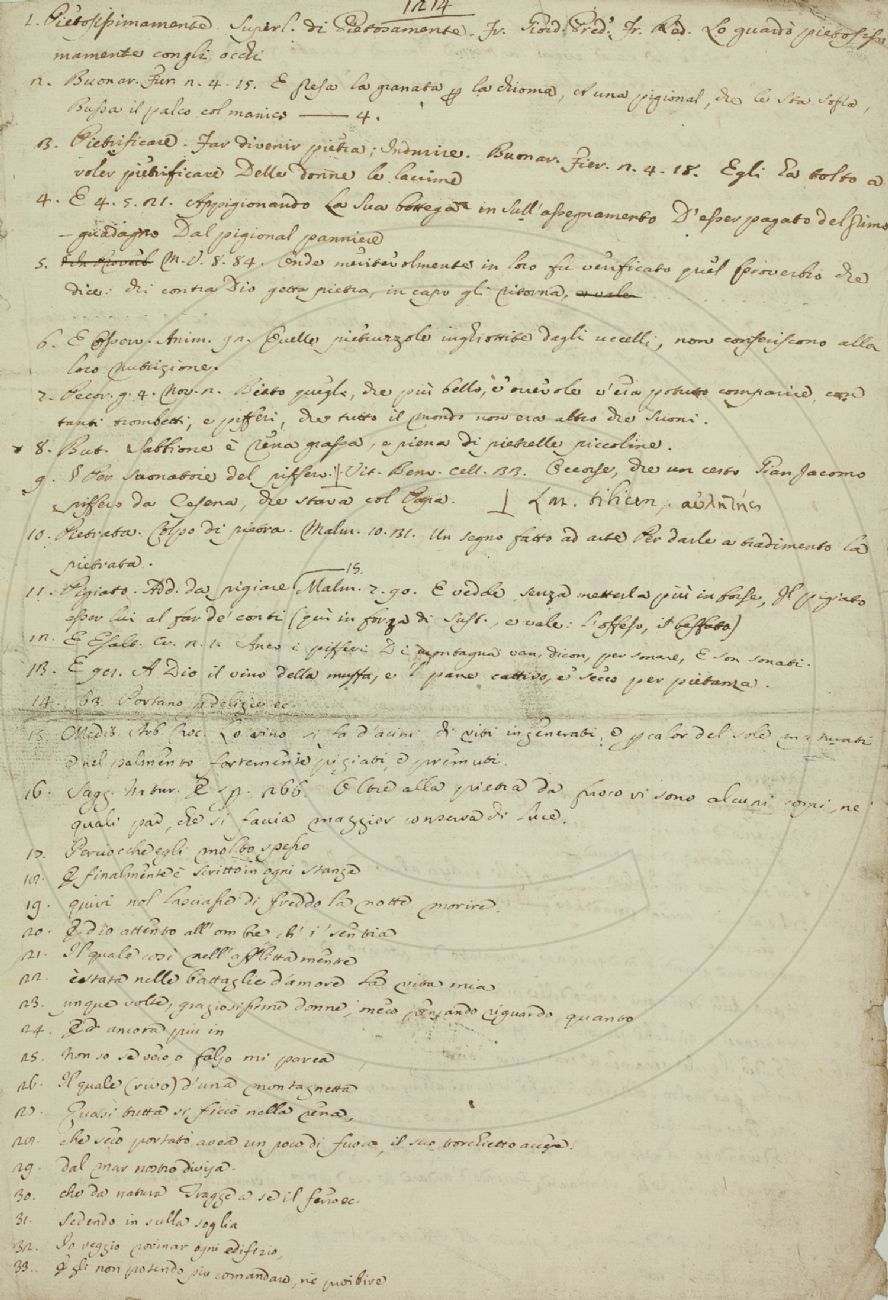 1214
1. Pietosissimamente Superl. di Pietosamente. Fr. Giord. Pred. Fr. Red. Lo guardò pietosissi
mamente con gli occhi
2. Buonar. Fier. 2. 4. 15. E presa la granata per la chioma, et una pigional, che le sta sotto,
Bussa il palco col manico —— 4.
3. Pietrificare. Far divenir pietra; Indurire. Buonar. Fier. 2. 4. 18. Egli ha tolto a
voler pietrificare Delle donne le lacrime
4. E 4. 5. 21. Appigionando La sua bottega in sull'assegnamento D'esser pagato del primo
guadagno Dal pigional panniere
5. M. V. 8. 84. Onde meritevolmente in loro fu verificato quel proverbio che
dice: chi contra Dio getta pietra, in capo gli ritorna, e vale
6. E Osserv. Anim. 92. Quelle pietruzzole inghiottite dagli uccelli, non conferiscono alla
loro nutrizione.
7. Pecor. g. 4. Nov. 2. Bieto quegli, che più bello, e orrevole v'era potuto comparire, con
tanti trombetti, e pifferi, che tutto il mondo non era altro che suoni.
8. But. Sabbione è rena grassa, e piena di pietrelle piccoline.
9. § Per Suonatore del piffero. Vit. Benv. Cell. 33. Occorse, che un certo Gianjacomo
piffero da Cesena, che stava col Papa. ⊥ Lat. tibicen, αὐλητής
10. Pietrata. Colpo di pietra. Malm. 10. 31. Un segno fatto ad arte Per darle a tradimento la
pietrata.
11. Pigiato. Add. da pigiare 15. Malm. 7. 90. E vedde senza metterla più in forse, Il pigiato
esser lui al far de' conti (qui in forza di Sust., e vale: l'offeso, il beffato)
12. E Esalt. Cr. 2. 1. Anco i pifferi Di montagna van, dicon, per sonare, E son sonati.
13. E 901. A Dio il vino della muffa, e 'l pane cattivo, e secco per pietanza.
14. 63. Portano delizie ec.
15. Medit. Arb. Croc. Lo vino si fa d'acini di viti ingenerati, e per calor del sole maturati
e nel palmento fortemente pigiati, e premuti.
16. Sagg. natur. Esp. 266. Oltre alla pietra da fuoco vi sono alcuni corpi, ne'
quali par, che si faccia maggior conserva di luce.
17. Perciocchè egli molto spesso
18. E finalmente è scritto in ogni stanza
19. quivi nol lasciasse di freddo la notte morire.
20. Ed io attento all'ombre ch' i' sentia
21. Il quale così nell'afflitta mente
22. è stata nelle battaglie d'amore la vita mia
23. unque volte, graziosissime donne, meco pensando riguardo quanto
24. Ed ancora più in
25. Non so se vero o falso mi parea
26. Il quale (rivo) d'una montagnetta
27. Quasi tutta si ficcò nella rena,
28. che seco portato avea un poco di fuoco, il suo torchietto accese.
29. dal mar nostro divisa.
30. che da natura Tragge a sè il ferro ec.
31. sedendo in sulla soglia
32. Io veggio rovinar ogni edifizio,
33. Egli non potendo più comandare, nè proibire